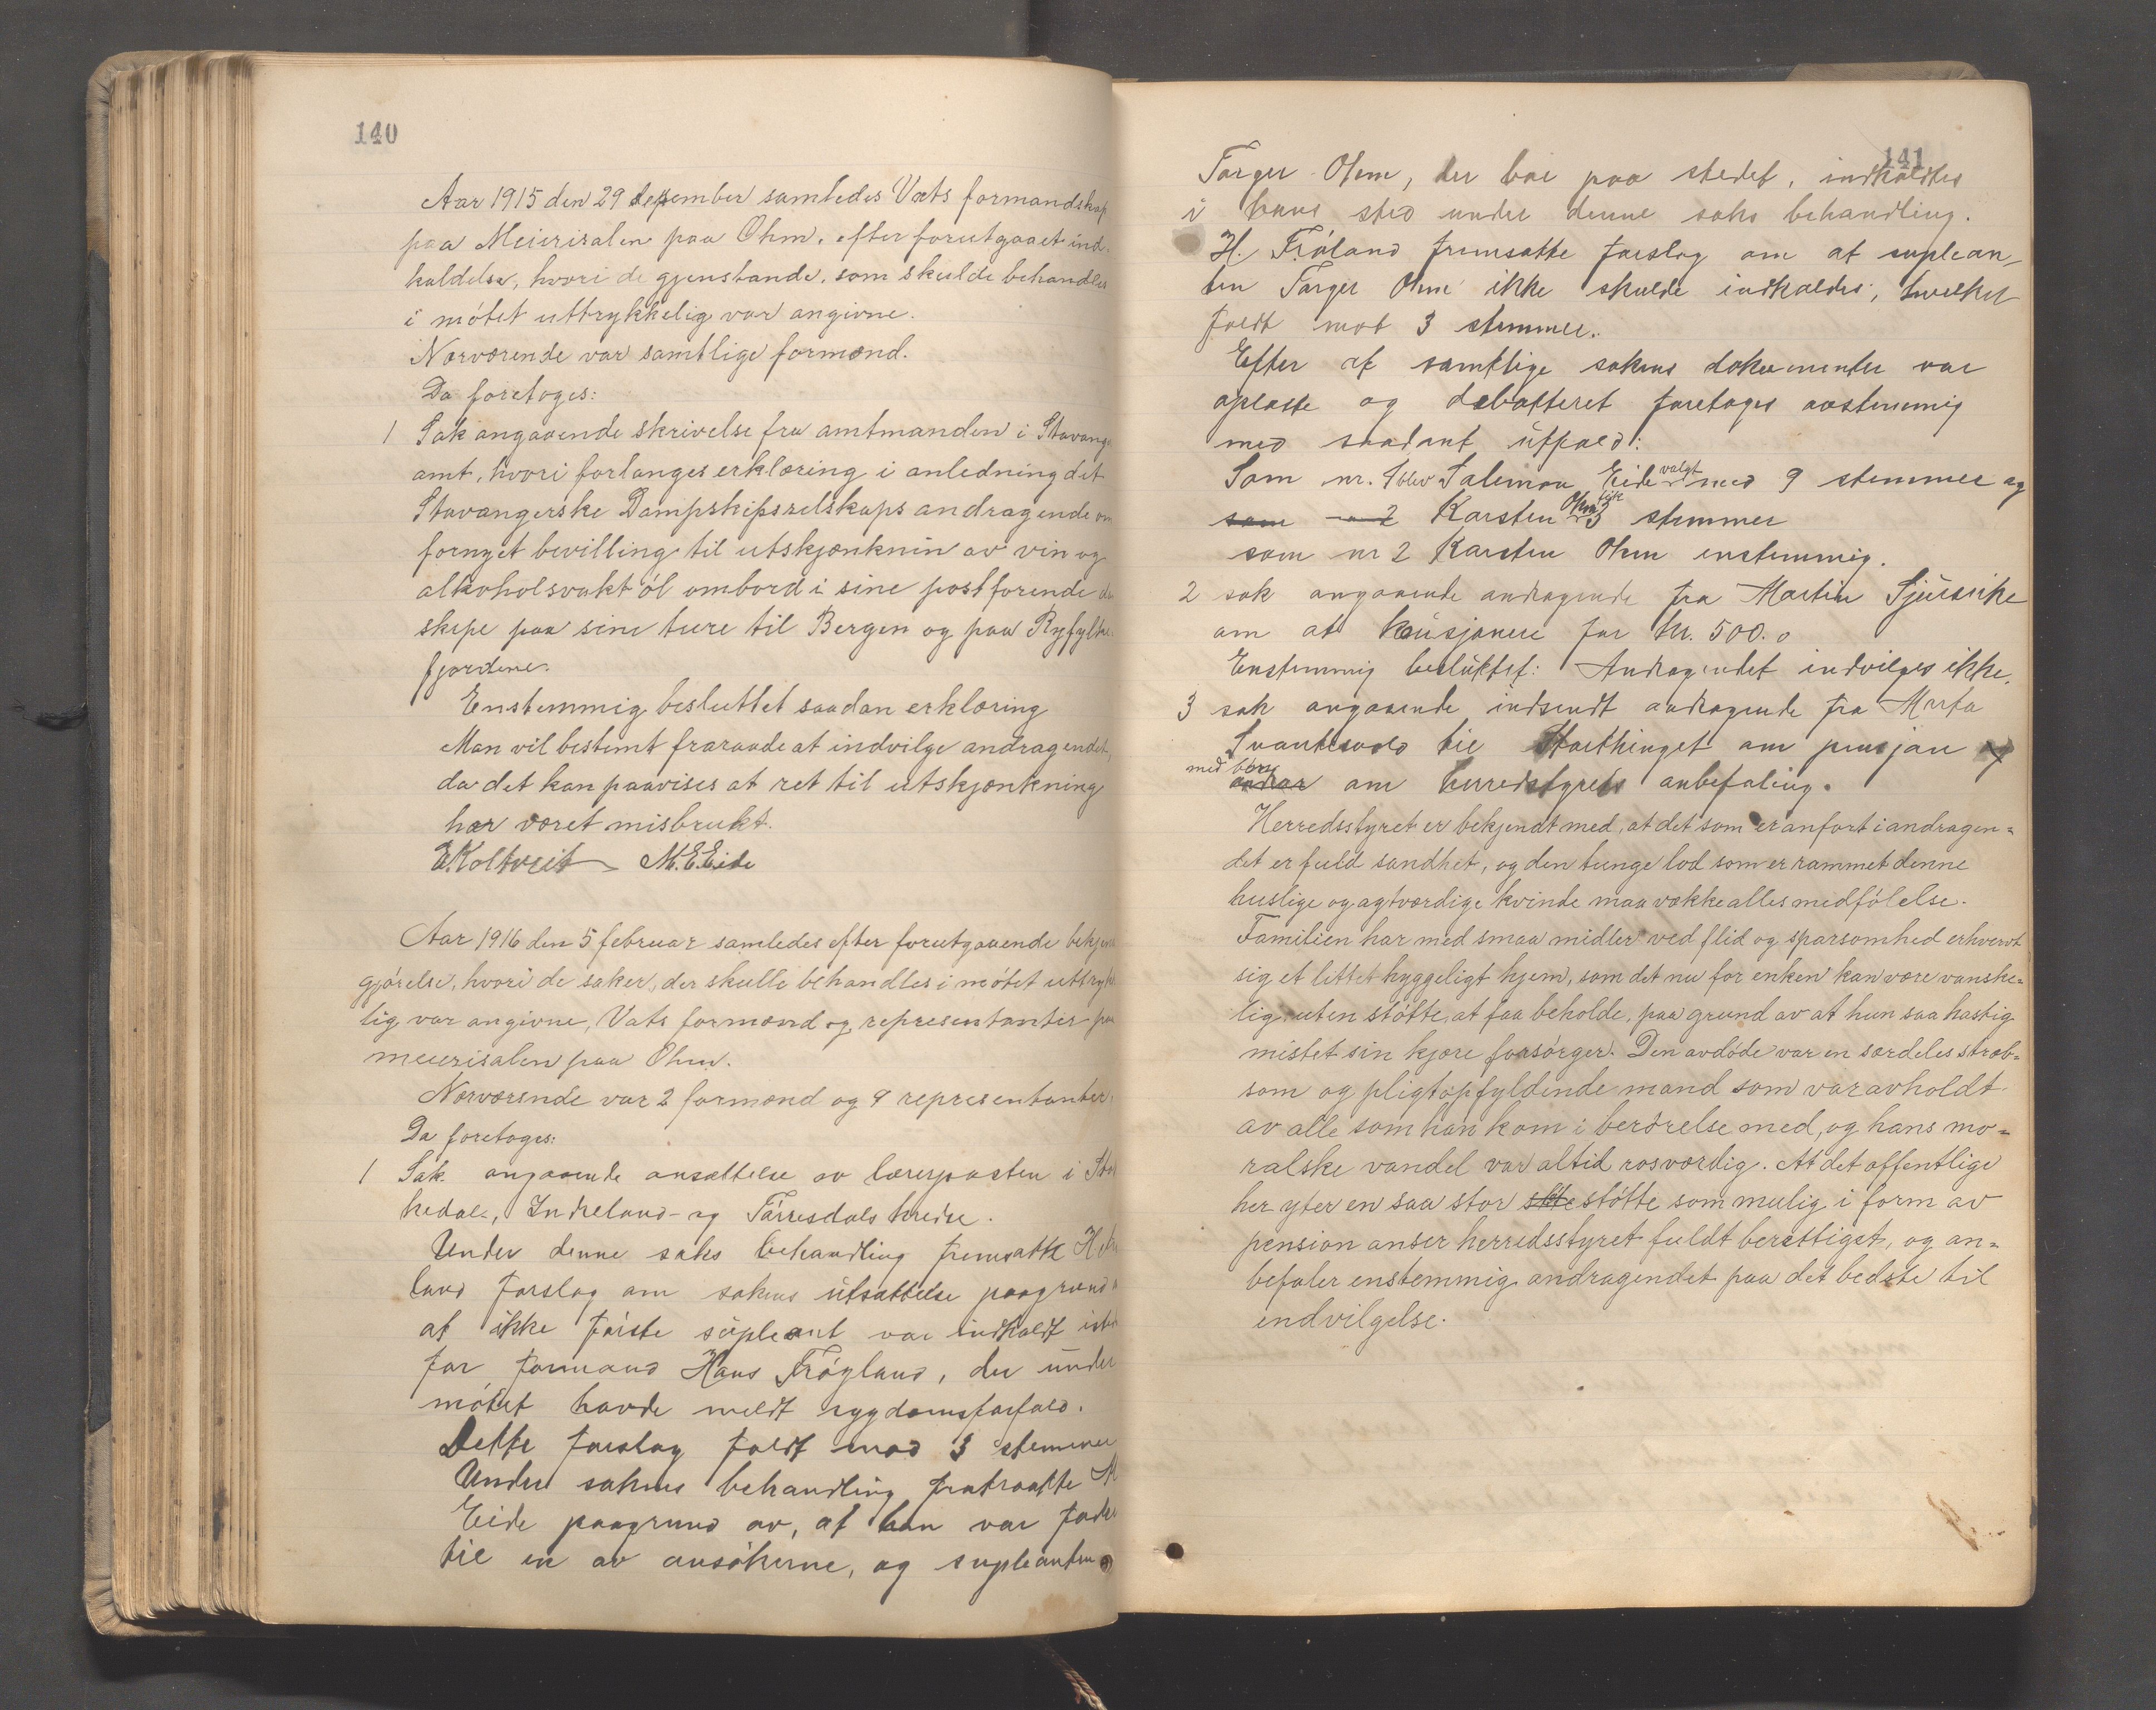 140
Aar 1915 den 29 desember samledes Vats formandskap
paa Meierisalen paa Ohm, efter forutgaaet ind-
kaldelse, hvori de gjenstande, som skulde behandles
i mötet uttrykkelig var angivne.
Nærværende var samtlige formænd.
Da foretoges:
1 Sak angaaende skrivelse fra amtmanden i Stavange
amt, hvori forlanges erklæring i anledning det
Stavangerske Dampskipsselskaps andragende om
fornyet bevilling til utskjænknin av vin og
alkoholsvakt öl ombord i sine postförende da
skipe paa sine ture til Bergen og paa Ryfylke
fjordene.
Enstemmig besluttet saadan erklæring
Man vil bestemt fraraade at indvilge andragendet,
da det kan paavises at ret til utskjænkning
har været misbrukt.
E. Koltveit M. E. Eide
Aar 1916 den 5 februar samledes efter forutgaaende bekjen
gjörelse, hvori de saker, der skulle behandles i mötet uttryk
lig var angivne, Vats formænd og representanter paa
meierisalen paa Ohm.
Nærværende var 2 formænd og 9 representanter.
Da foretoges:
1 Sak angaaende ansættelse av lærerposten i
kedal-, Indreland- og Törresdals kredse.
Under denne saks behandling fremsatte
land forslag om sakens utsættelse paagrund
at ikke förste supleant var indkaldt
for formand Hans Frögland, der under
mötet havde meldt sygdomsforfald.
Dette forslag faldt mod 3 stemmer
Under sakens behandling fratraatte M
Eide paagrund av, at han var fader
til en av ansökerne, og supleanten
141
Torger Ohm, der bar paa stedet, indkaldtes
i hans sted under denne saks behandling.
H. Fröland fremsatte forslag om at suplean-
ten Torger Ohm ikke skulde indkaldes, hvilket
faldt mot 3 stemmer.
Efter at samtlige sakens dokumenter var
oplæste og debatteret foretoges avstemmig
med saadant utfald:
Som nr. 1 blev Salemon Eide valgt med 9 stemmer og
som nr 2 Karsten Ohm fik 3 stemmer
som nr 2 Karsten Ohm enstemmig.
2 sak angaaende andragende fra Martin Sjursvike
om at kausjonere for kr. 500.0
Enstemmig besluttet: Andragendet indvilges ikke.
3 sak angaaende indsendt andragende fra Marta
Svantesvold til Storthinget om pensjon og
med bön
andrar om herredstyrets anbefaling.
Herredsstyret er bekjendt med, at det som er anfört i andragen=
det er fuld sandhet, og den tunge lod som er rammet denne
huslige og agtværdige kvinde maa vække alles medfölelse.
Familien har med smaa midler ved flid og sparsomhed erhvervt
sig et littet hyggeligt hjem, som det nu for enken kan være vanske=
lig, uten stötte, at faa beholde, paa grund av at hun saa hastig
mistet sin kjære forsörger. Den avdöde var en særdeles stræb=
som og pligtopfyldende mand som var avholdt
av alle som han kom i berörelse med, og hans mo=
ralske vandel var altid rosværdig. At det offentlige
her yter en saa stor stötte som mulig i form av
pension anser herredsstyret fuldt berettiget, og an=
befaler enstemmig andragendet paa det bedste til
indvilgelse.